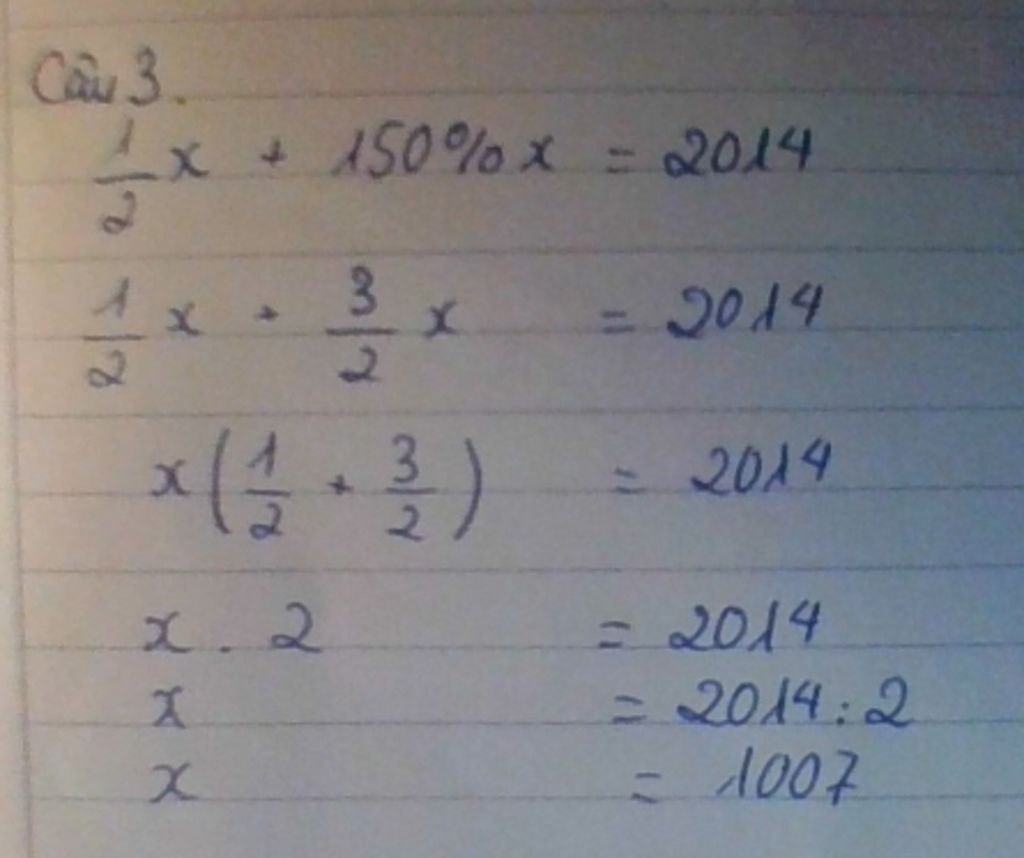 Câu 3.
1/2 x + 150% x = 2014
1/2 x + 3/2 x = 2014
x(1/2 + 3/2) = 2014
x . 2 = 2014
x = 2014 : 2
x = 1007